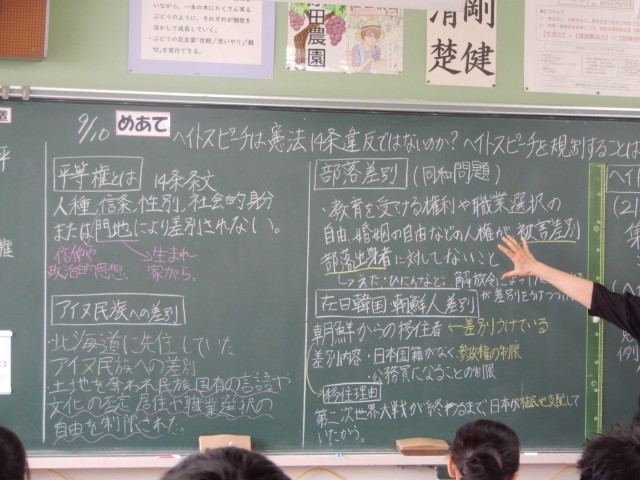 いながら、一本の木にたくさん実る
ぶどうのように、それぞれが個性を
活かして成長していく。
・ぶどうの花言葉「信頼」「思いやり」「親
切」を実行できる。
田農園
剛健
清楚
9/10 めあて ヘイトスピーチは憲法14条違反ではないのか？ヘイトスピーチを規制することは
平等権とは 14条条文
人種、信条、性別、社会的身分
または門地により差別されない。
信仰や
政治的思想
生まれ
家がら。
アイヌ民族への差別
・北海道に先住していた
アイヌ民族への差別
・土地を奪われ民族固有の言語や
文化の否定、居住や職業選択の
自由を制限された。
部落差別 (同和問題)
・教育を受ける権利や職業選択の
自由、婚姻の自由などの人権が、被害差別
部落出身者に対しないこと
→えた・ひにんなど。解放令によって
が差別をうけつづ
在日韓国・朝鮮人差別
朝鮮からの移住者 ←差別うけている
差別内容・日本国籍がなく、参政権の制限
公務員になることの制限
移住理由
第二次世界大戦が終わるまで、日本が植民地支配して
いたから。
ヘイ
(2